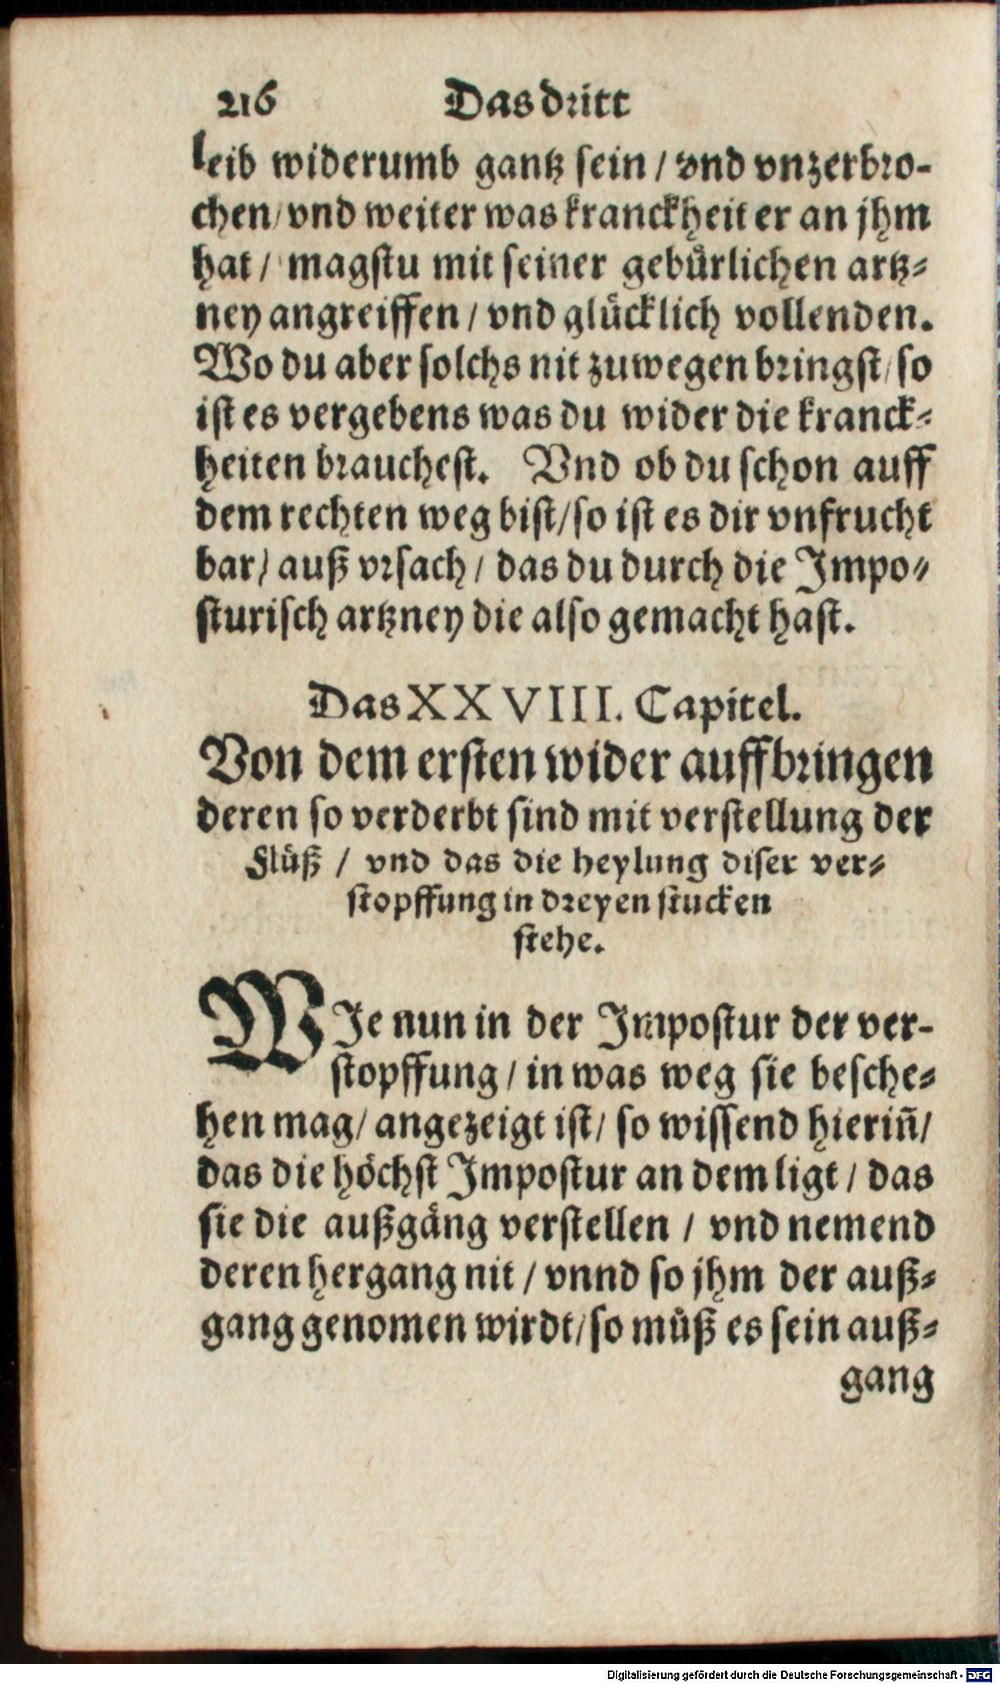 216 Das dritt
leib widerumb gantz sein / vnd vnzerbro-
chen / vnd weiter was kranckheit er an jhm
hat / magstu mit seiner gebürlichen artz-
ney angreiffen / vnd glücklich vollenden.
Wo du aber solchs nit zuwegen bringst / so
ist es vergebens was du wider die kranck-
heiten brauchest. Vnd ob du schon auff
dem rechten weg bist / so ist es dir vnfrucht
bar / auß vrsach / das du durch die Impo-
sturisch artzney die also gemacht hast.
Das XXVIII. Capitel.
Von dem ersten wider auffbringen
deren so verderbt sind mit verstellung der
Flüß / vnd das die heylung diser ver-
stopffung in dreyen stucken
stehe.
WIe nun in der Impostur der ver-
stopffung / in was weg sie besche-
hen mag / angezeigt ist / so wissend hierin̄ /
das die höchst Impostur an dem ligt / das
sie die außgäng verstellen / vnd nemend
deren hergang nit / vnnd so jhm der auß-
gang genomen wirdt / so müß es sein auß-
gang
Digitalisierung gefördert durch die Deutsche Forschungsgemeinschaft - DFG